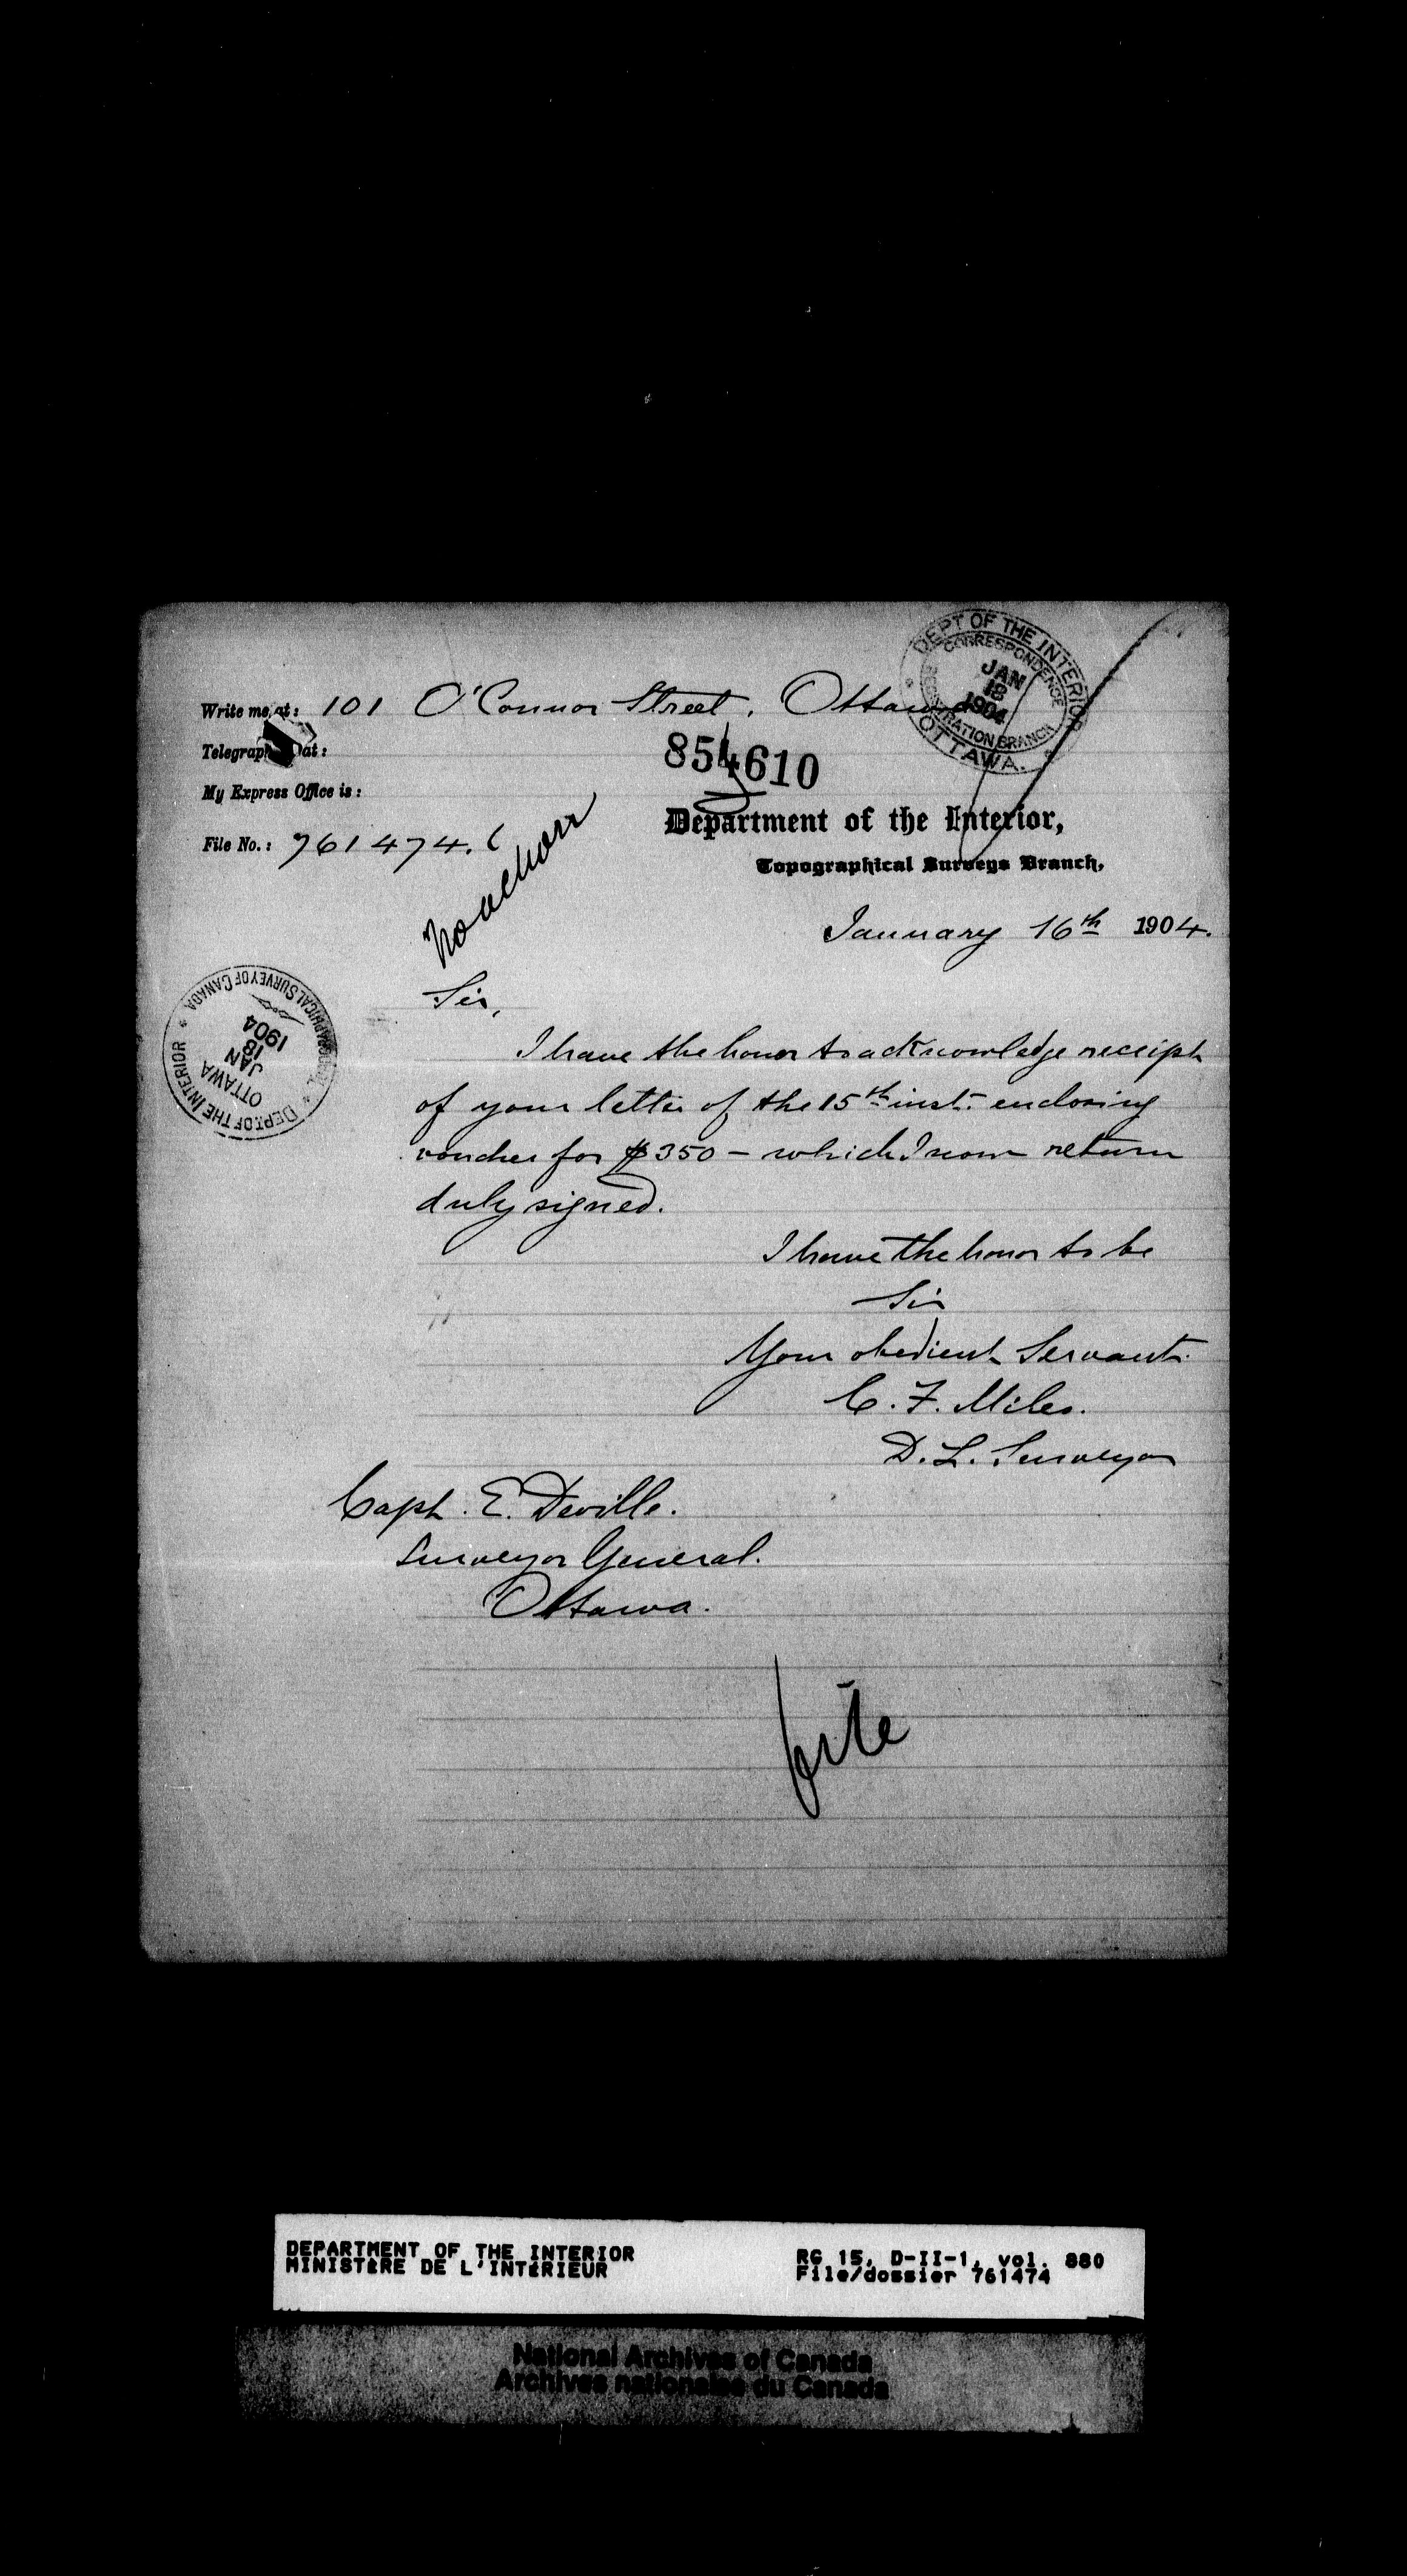 DEPT OF THE INTERIOR
CORRESPONDENCE
JAN
18
1904
REGISTRATION BRANCH
OTTAWA.
Write me at: 101 O'Connor Street, Ottawa
Telegraph at:
854610
My Express Office is:
Department of the Interior,
File No.: 761474.C
Topographical Surveys Branch,
January 16th 1904.
DEPT. OF THE INTERIOR
TOPOGRAPHICAL SURVEY OF CANADA
OTTAWA
JAN
18
1904
Sir,
I have the honor to acknowledge receipt
of your letter of the 15th inst. enclosing
voucher for $350 – which I now return
duly signed.
I have the honor to be
Sir
Your obedient Servant.
C. F. Miles.
D. L. Surveyor
Capt. E. Deville.
Surveyor General.
Ottawa.
file
DEPARTMENT OF THE INTERIOR
MINISTÈRE DE L'INTÉRIEUR
RG 15, D-II-1, vol. 880
File/dossier 761474
National Archives of Canada
Archives nationales du Canada